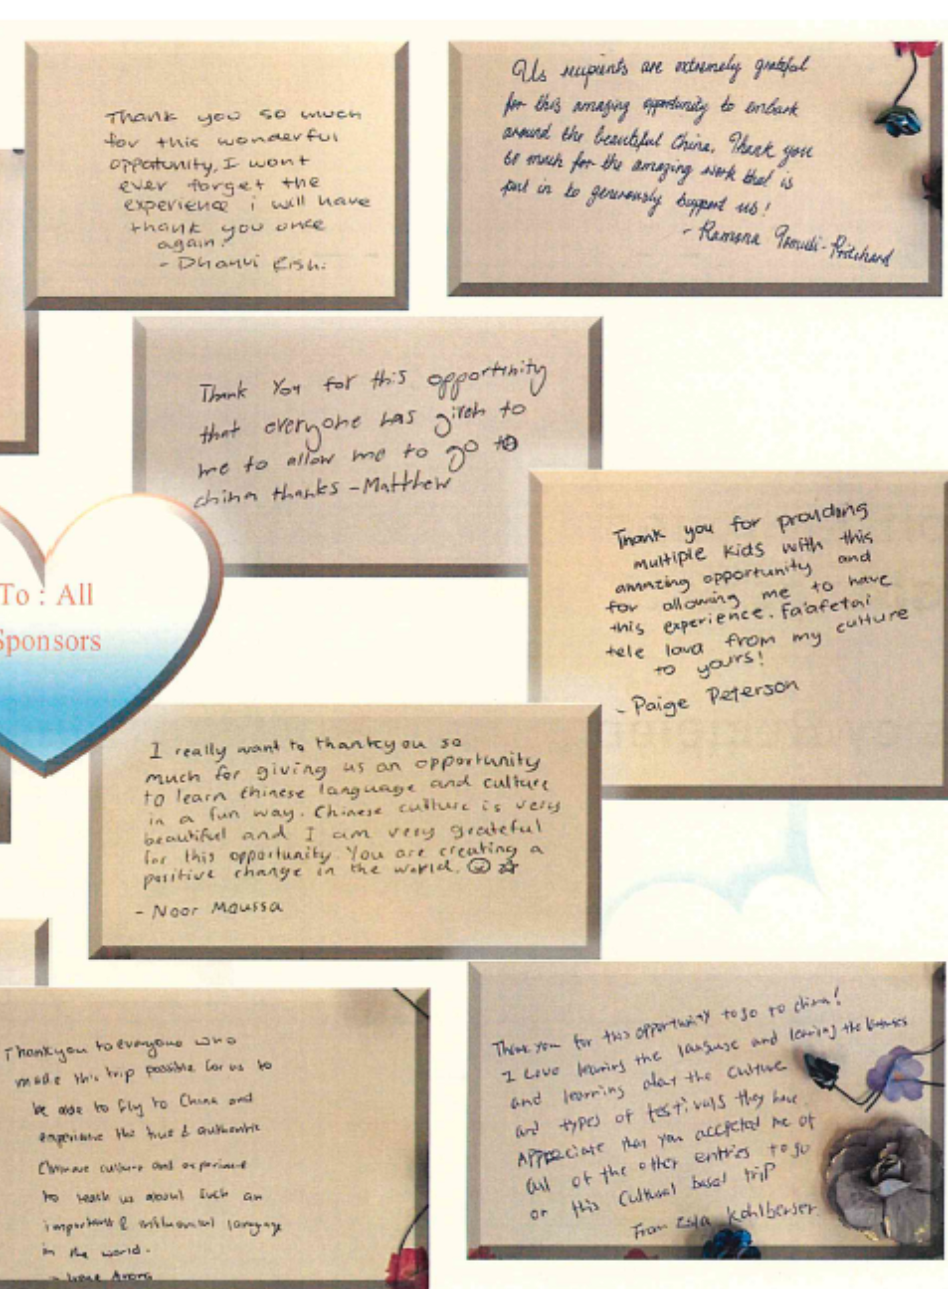 Thank you so much
for this wonderful
oppatunity, I wont
ever forget the
experience i will have
thank you once
again.
- Dhanvi Rishi
Us recipients are extremely grateful
for this amazing opportunity to embark
around the beautiful China, Thank you
so much for the amazing work that is
put in to generously support us!
- Ramona -Pritchard
Thank You for this opportunity
that everyone has given to
me to allow me to go to
china thanks - Matthew
Thank you for providing
multiple kids with this
amazing opportunity and
for allowing me to have
this experience. Fa'afetai
tele lava from my culture
to yours!
- Paige Peterson
To : All
Sponsors
I really want to thankyou so
much for giving us an opportunity
to learn Chinese language and culture
in a fun way. Chinese culture is very
beautiful and I am very grateful
for this opportunity. You are creating a
positive change in the world. ☺ ☆
- Noor Moussa
Thankyou to everyone who
made this trip possible for us to
be able to fly to China and
experience the true & authentic
Chinese culture and experience
to teach us about such an
important & language
in the world.
- Arora
Thank you for this opportunity to go to china!
I love learning the language and learning the
and learning about the culture
and types of festivals they have
Appreciate that you accepted me of
out of the other entries to go
on this Cultural based trip
From Kohlberger